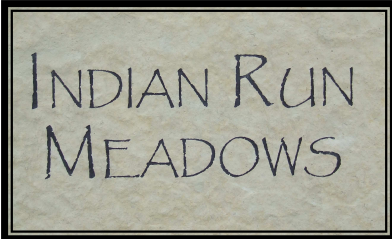 INDIAN RUN
MEADOWS